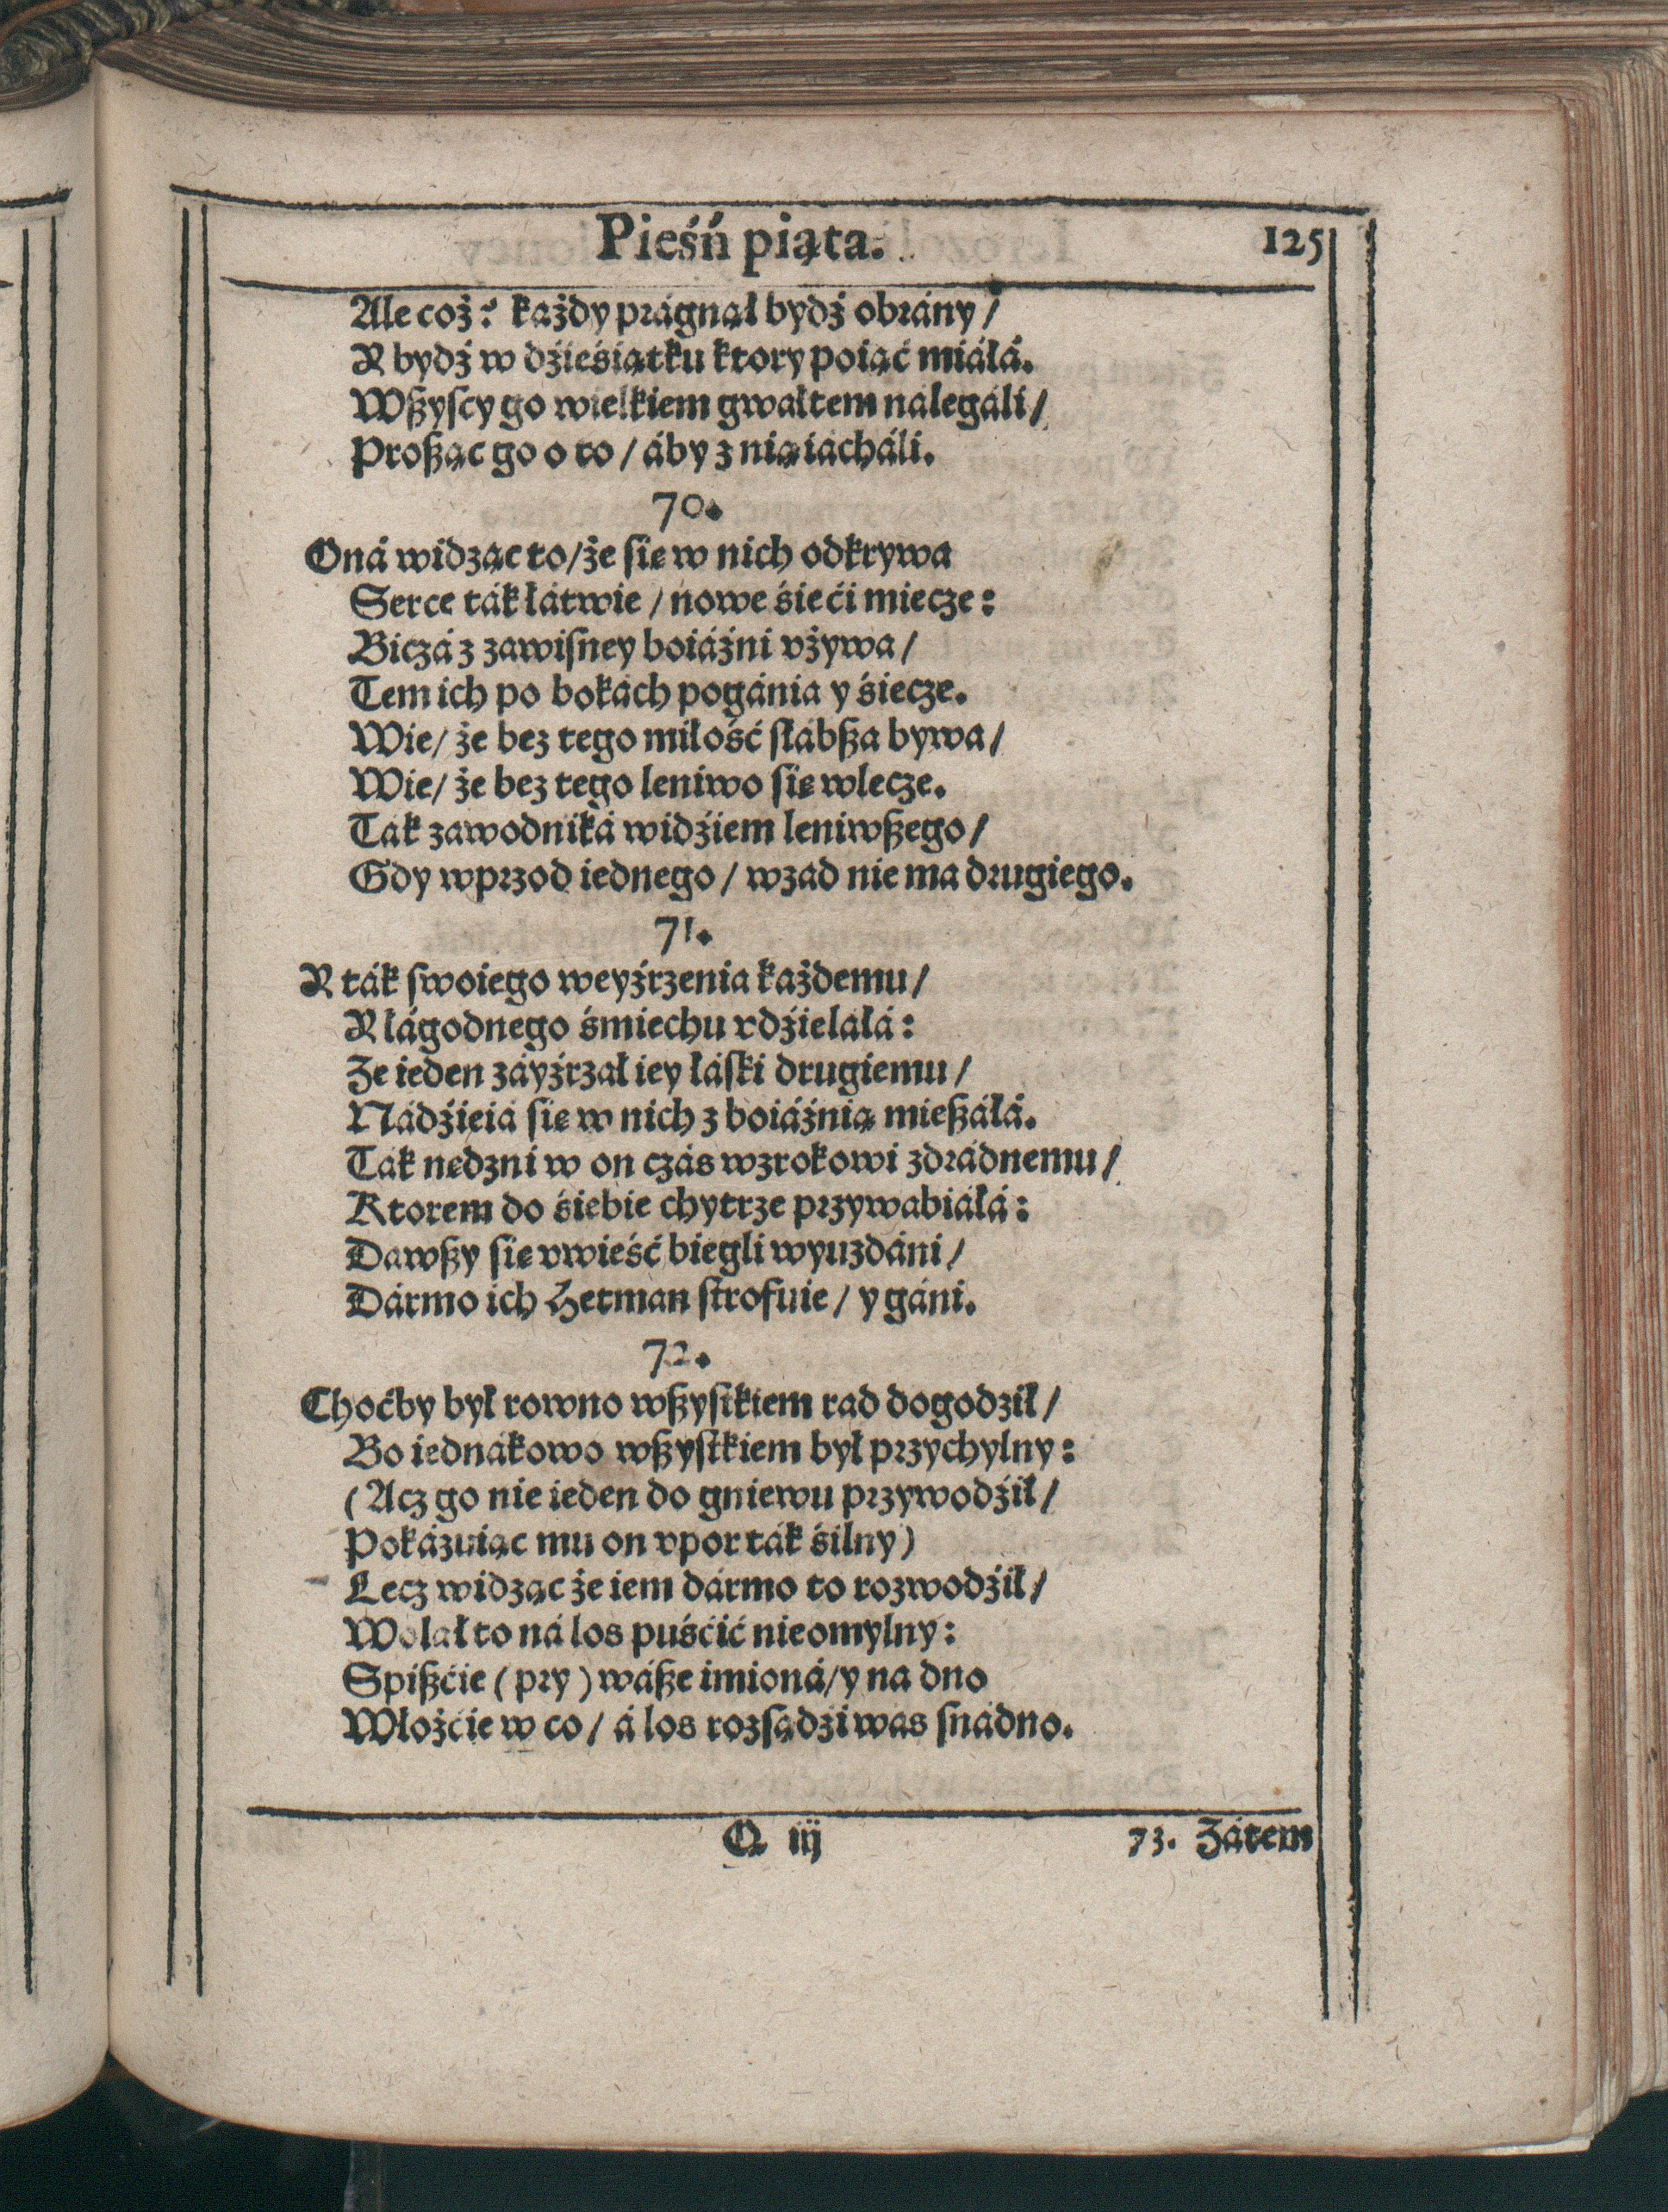 Pieśń piąta. 125
Ale coż? każdy prágnął bydź obrány /
Y bydź w dźieśiątku ktory poiąć miáłá.
Wßyſcy go wielkiem gwałtem nálegáli /
Proßąc go o to / áby z nią iácháli.
70.
Oná widząc to / że ſię w nich odkrywa
Serce ták łátwie / nowe śieći miecze:
Biczá z zawiſney boiáźni vżywa /
Tem ich po bokách pogánia y śiecze.
Wie / że bez tego miłość ſłábßa bywa /
Wie / że bez tego leniwo ſię wlecze.
Ták zawodniká widźiem leniwßego /
Gdy wprzod iednego / wzad nie ma drugiego.
71.
Y ták ſwoiego weyźrzenia każdemu /
Y łágodnego śmiechu vdźielałá:
Że ieden záyźrzał iey łáſki drugiemu /
Nádźieiá ſię w nich z boiáźnią mießáłá.
Ták nędzni w on czás wzrokowi zdrádnemu /
Ktorem do śiebie chytrze przywabiáłá:
Dawßy ſię vwieść biegli wyuzdáni /
Dármo ich Hetman ſtrofuie / y gáni.
72.
Choćby był rowno wßyſtkiem rad dogodził /
Bo iednákowo wßyſtkiem był przychylny:
(Acz go nie ieden do gniewu przywodźił /
Pokázuiąc mu on vpor ták śilny)
Lecz widząc że iem dármo to rozwodźił /
Wolał to ná los puśćić nieomylny:
Spißćie (pry) wáße imioná / y na dno
Włożćie w co / á los rozſądźi was ſnádno.
Q iij 73. Zátem